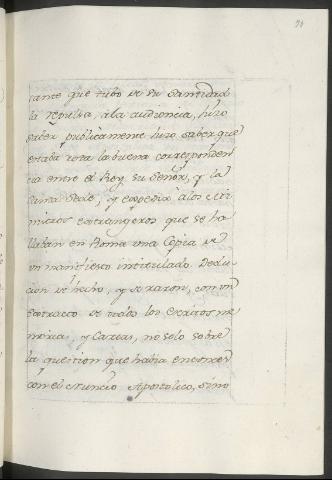 tante que tubo de Su Santidad
la repulsa, á la audiencia, hizo
saber publicamente hizo saber que
estaba rota la buena corresponden
cia entre el Rey, su Señor, y la
Santa Sede, y expedir a los Mi
nistros extrangeros que se ha
llaban en Roma una Copia de
un manifiesto intitulado. Deduc
cion de hecho, y de razon, con un
extracto de todos los Escritos, me
morias, y Cartas, no solo sobre
la question que habia entonces
con el Nuncio Apostolico, sino